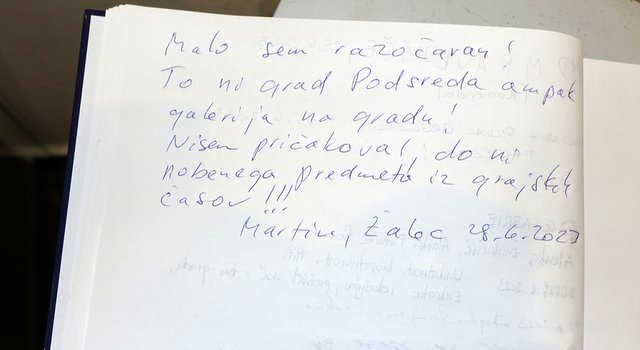 Malo sem razočaran!
To ni grad Podsreda ampak
galerija na gradu!
Nisem pričakoval do ni
nobenega predmeta iz grajskih
časov!!!
Martin, Žalec 28.6.2023